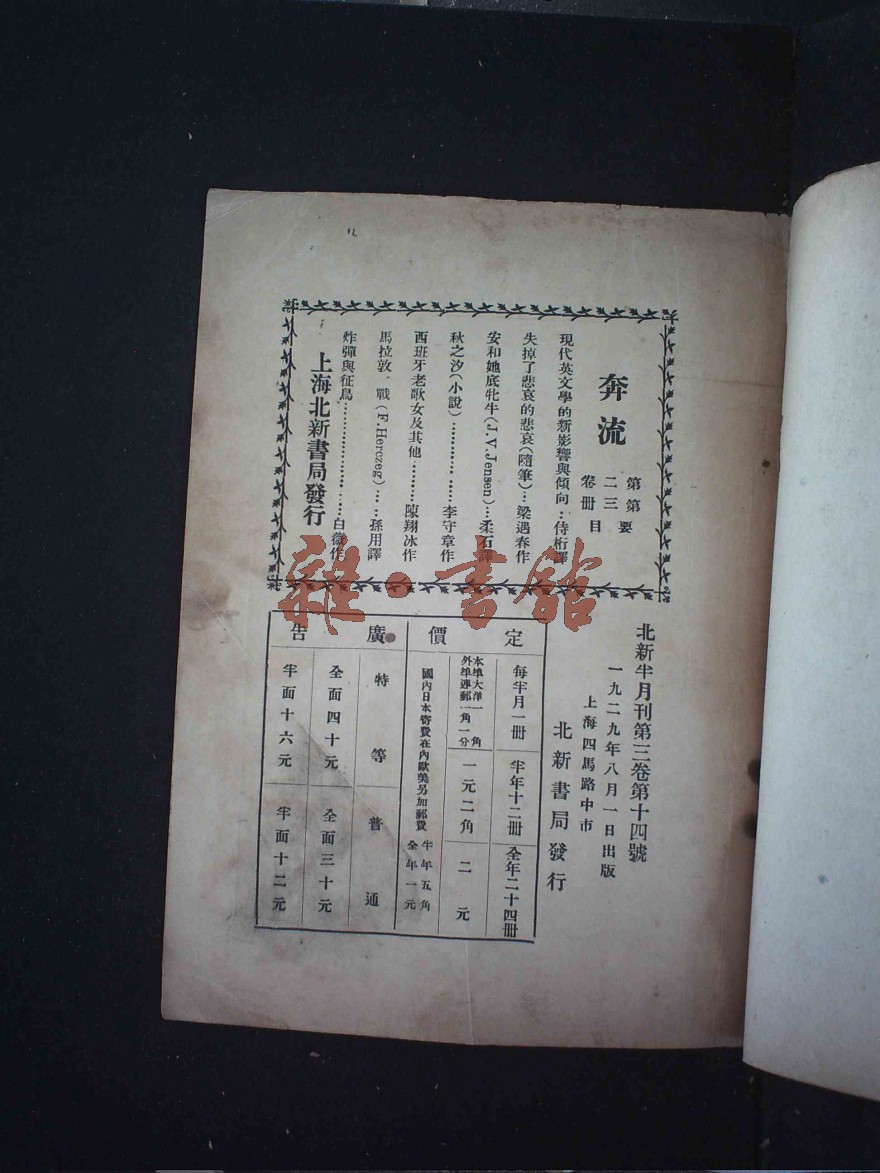 奔流
第二卷
第三冊
要目
現代英文學的新影響與傾向‥侍桁譯
失掉了悲哀的悲哀(隨筆)…梁遇春作
安和她底牝牛(J.V.Jensen)…柔石譯
秋之汐(小說)……………李守章作
西班牙老歌女及其他………陳翔冰作
馬拉敦之戰(F.Herczeg)……孫用譯
炸彈與征鳥……………………白薇作
上海北新書局發行
北新半月刊第三卷第十四號
一九二九年八月一日出版
上海四馬路中市
北新書局發行
定價
每半月一冊
半年十二冊
全年二十四冊
本埠大洋一角
外埠連郵一角一分
一元二角
二元
國內日本寄費在內歐美另加郵費
半年五角
全年一元
廣告
特等
普通
全面四十元
全面三十元
半面十六元
半面十二元
雜·書館